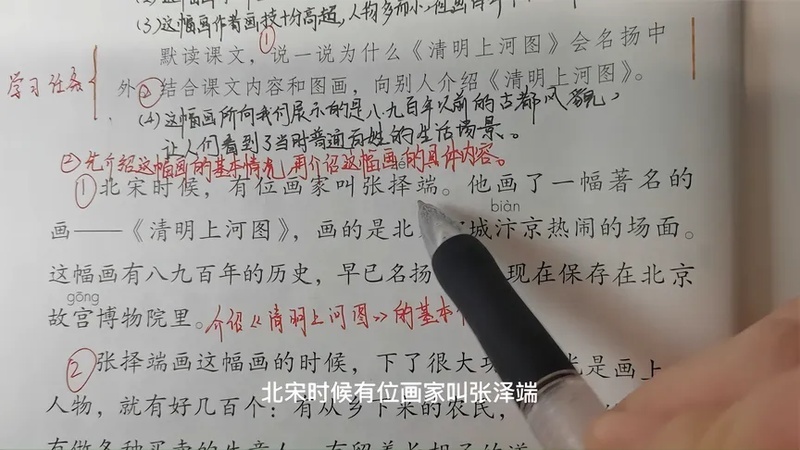 (3)这幅画作者画技十分高超,人物多而小,但画
默读课文,说一说为什么《清明上河图》会名扬中
①
学习任务
外。②结合课文内容和图画,向别人介绍《清明上河图》。
(4)这幅画所向我们展示的是八九百年以前的古都风貌,
让人们看到了当时普通百姓的生活场景。
②先介绍这幅画的基本情况,再介绍这幅画的具体内容。
①北宋时候,有位画家叫张择端。他画了一幅著名的
biàn
画——《清明上河图》,画的是北 城汴京热闹的场面。
这幅画有八九百年的历史,早已名扬 现在保存在北京
gōng
故宫博物院里。介绍《清明上河图》的基本
②张择端画这幅画的时候,下了很大 光是画上
北宋时候有位画家叫张泽端
人物,就有好几百个:有从乡下来的农民,
有做各种买卖的生意人,有留着长胡子的道